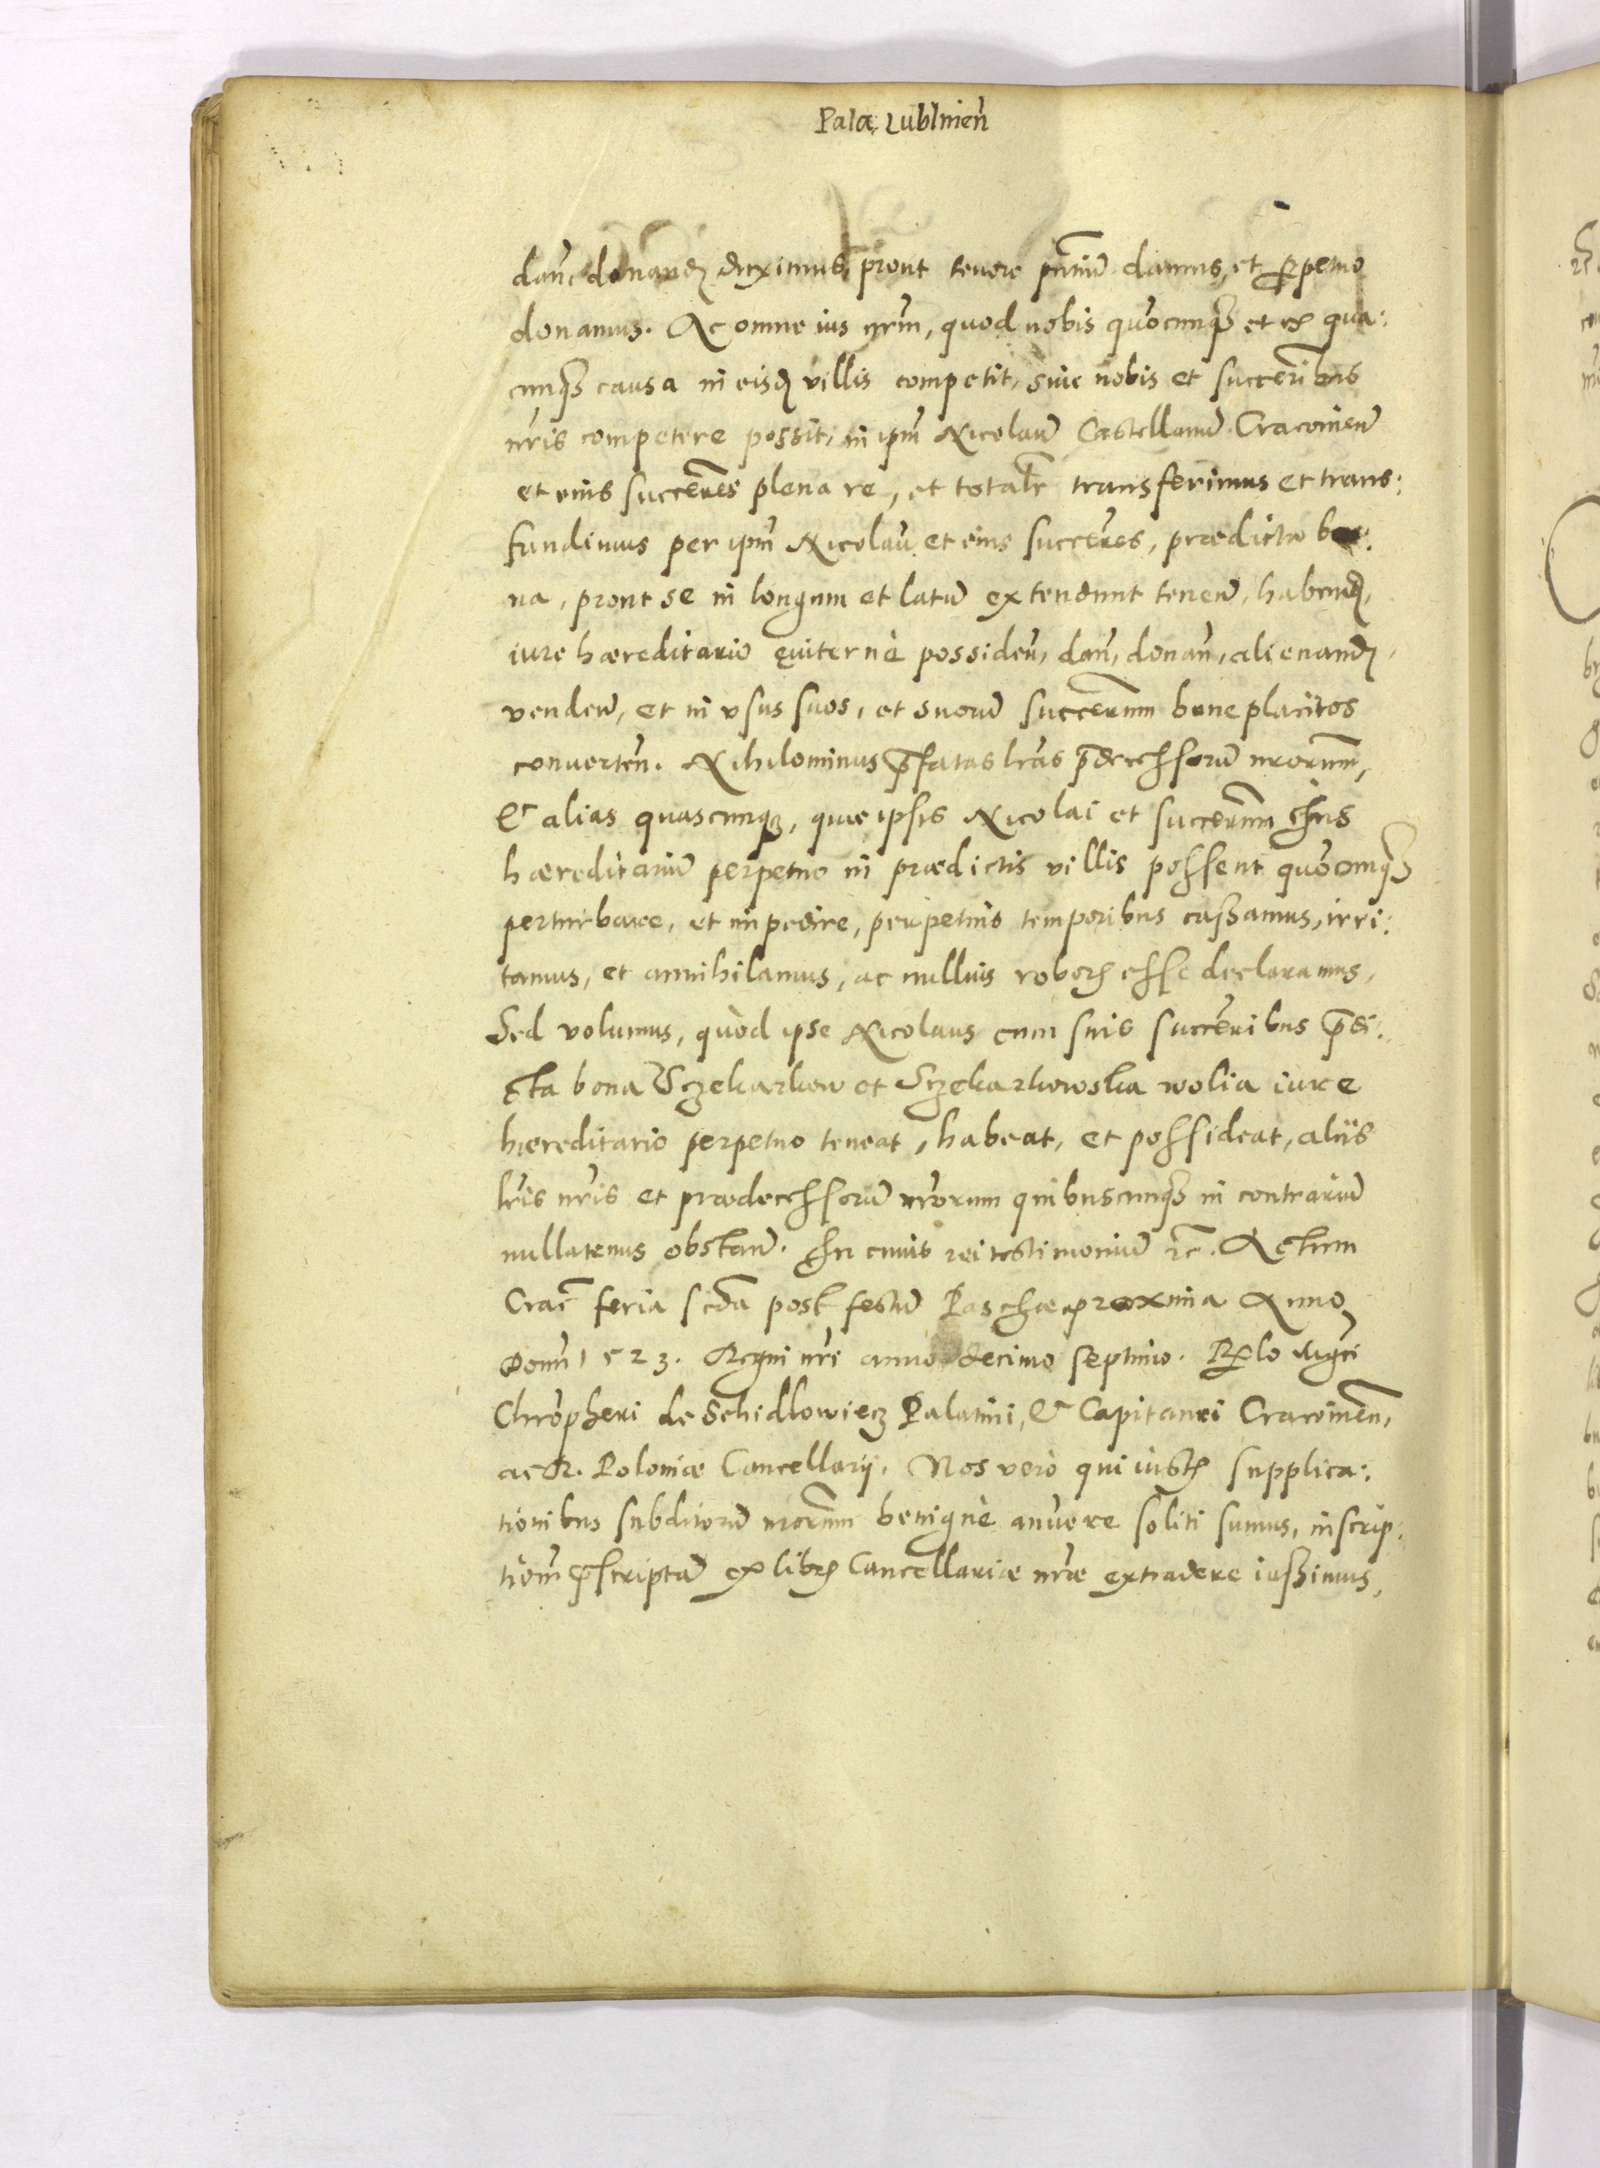 Pala: Lublineñ
dañ, donandȝ duximus, prout tenore pñtium damus, et perpetuo
donamus. Ac omne ius nrm̃, quod nobis quocunqȝ et ex qua:
cunqȝ causa in eisdȝ villis competit, siue nobis et succerib̃us
nris̃ competere possit, in ipm̃ Nicolaũ Castellanũ Cracouieñ
et eius succeres̃ plenare, et totalr̃ transferimus et trans:
fundimus per ipm̃ Nicolaũ et eius succeres̃, prædicta bo:
na, prout se in longum et latũ extendunt teneñ, habendȝ,
iure hæreditario æuiternè possideñ, dañ, donañ, alienandȝ,
vendeñ, et in vsus suos, et suorũ succerum̃ beneplacitos
conuerteñ. Nihilominus p̃fatas lras̃ p̃decessorũ nrorum̃,
et alias quascunqȝ, quæ ipsis Nicolai et succerum̃ Ius
hæreditariũ perpetuo in prædictis villis possent quocunqȝ
perturbare, et impedire, perpetuis temporibus cassamus, irri:
tamus, et annihilamus, ac nullius roboris esse declaramus,
Sed volumus, quòd ipse Nicolaus cum suis succerib̃us p̃di:
cta bona Sczekarkow et Sczekarkowska wolia iure
hæreditario perpetuo teneat, habeat, et possideat, aliis
lris̃ nris̃ et prædecessorũ nrorum̃ quibuscunqȝ in contrariũ
nullatenus obstañ. In cuius rei testimoniũ etc. Actum
Crac̃ feria scd̃a post festũ Paschæ proxima Anno
Domĩ 1523. Regni nrĩ anno decimo septimo. Rel̃o Mgc̃i
Chrõpheri de Schidlowiecz Palatini, et Capitanei Cracouieñ,
ac R. Poloniæ Cancellarij. Nos verò qui iustis supplica:
tionibus subditorũ nrorum̃ benignè anuere soliti sumus, inscrip:
tiom̃ p̃scriptã ex libris Cancellariæ nræ̃ extradere iussimus,